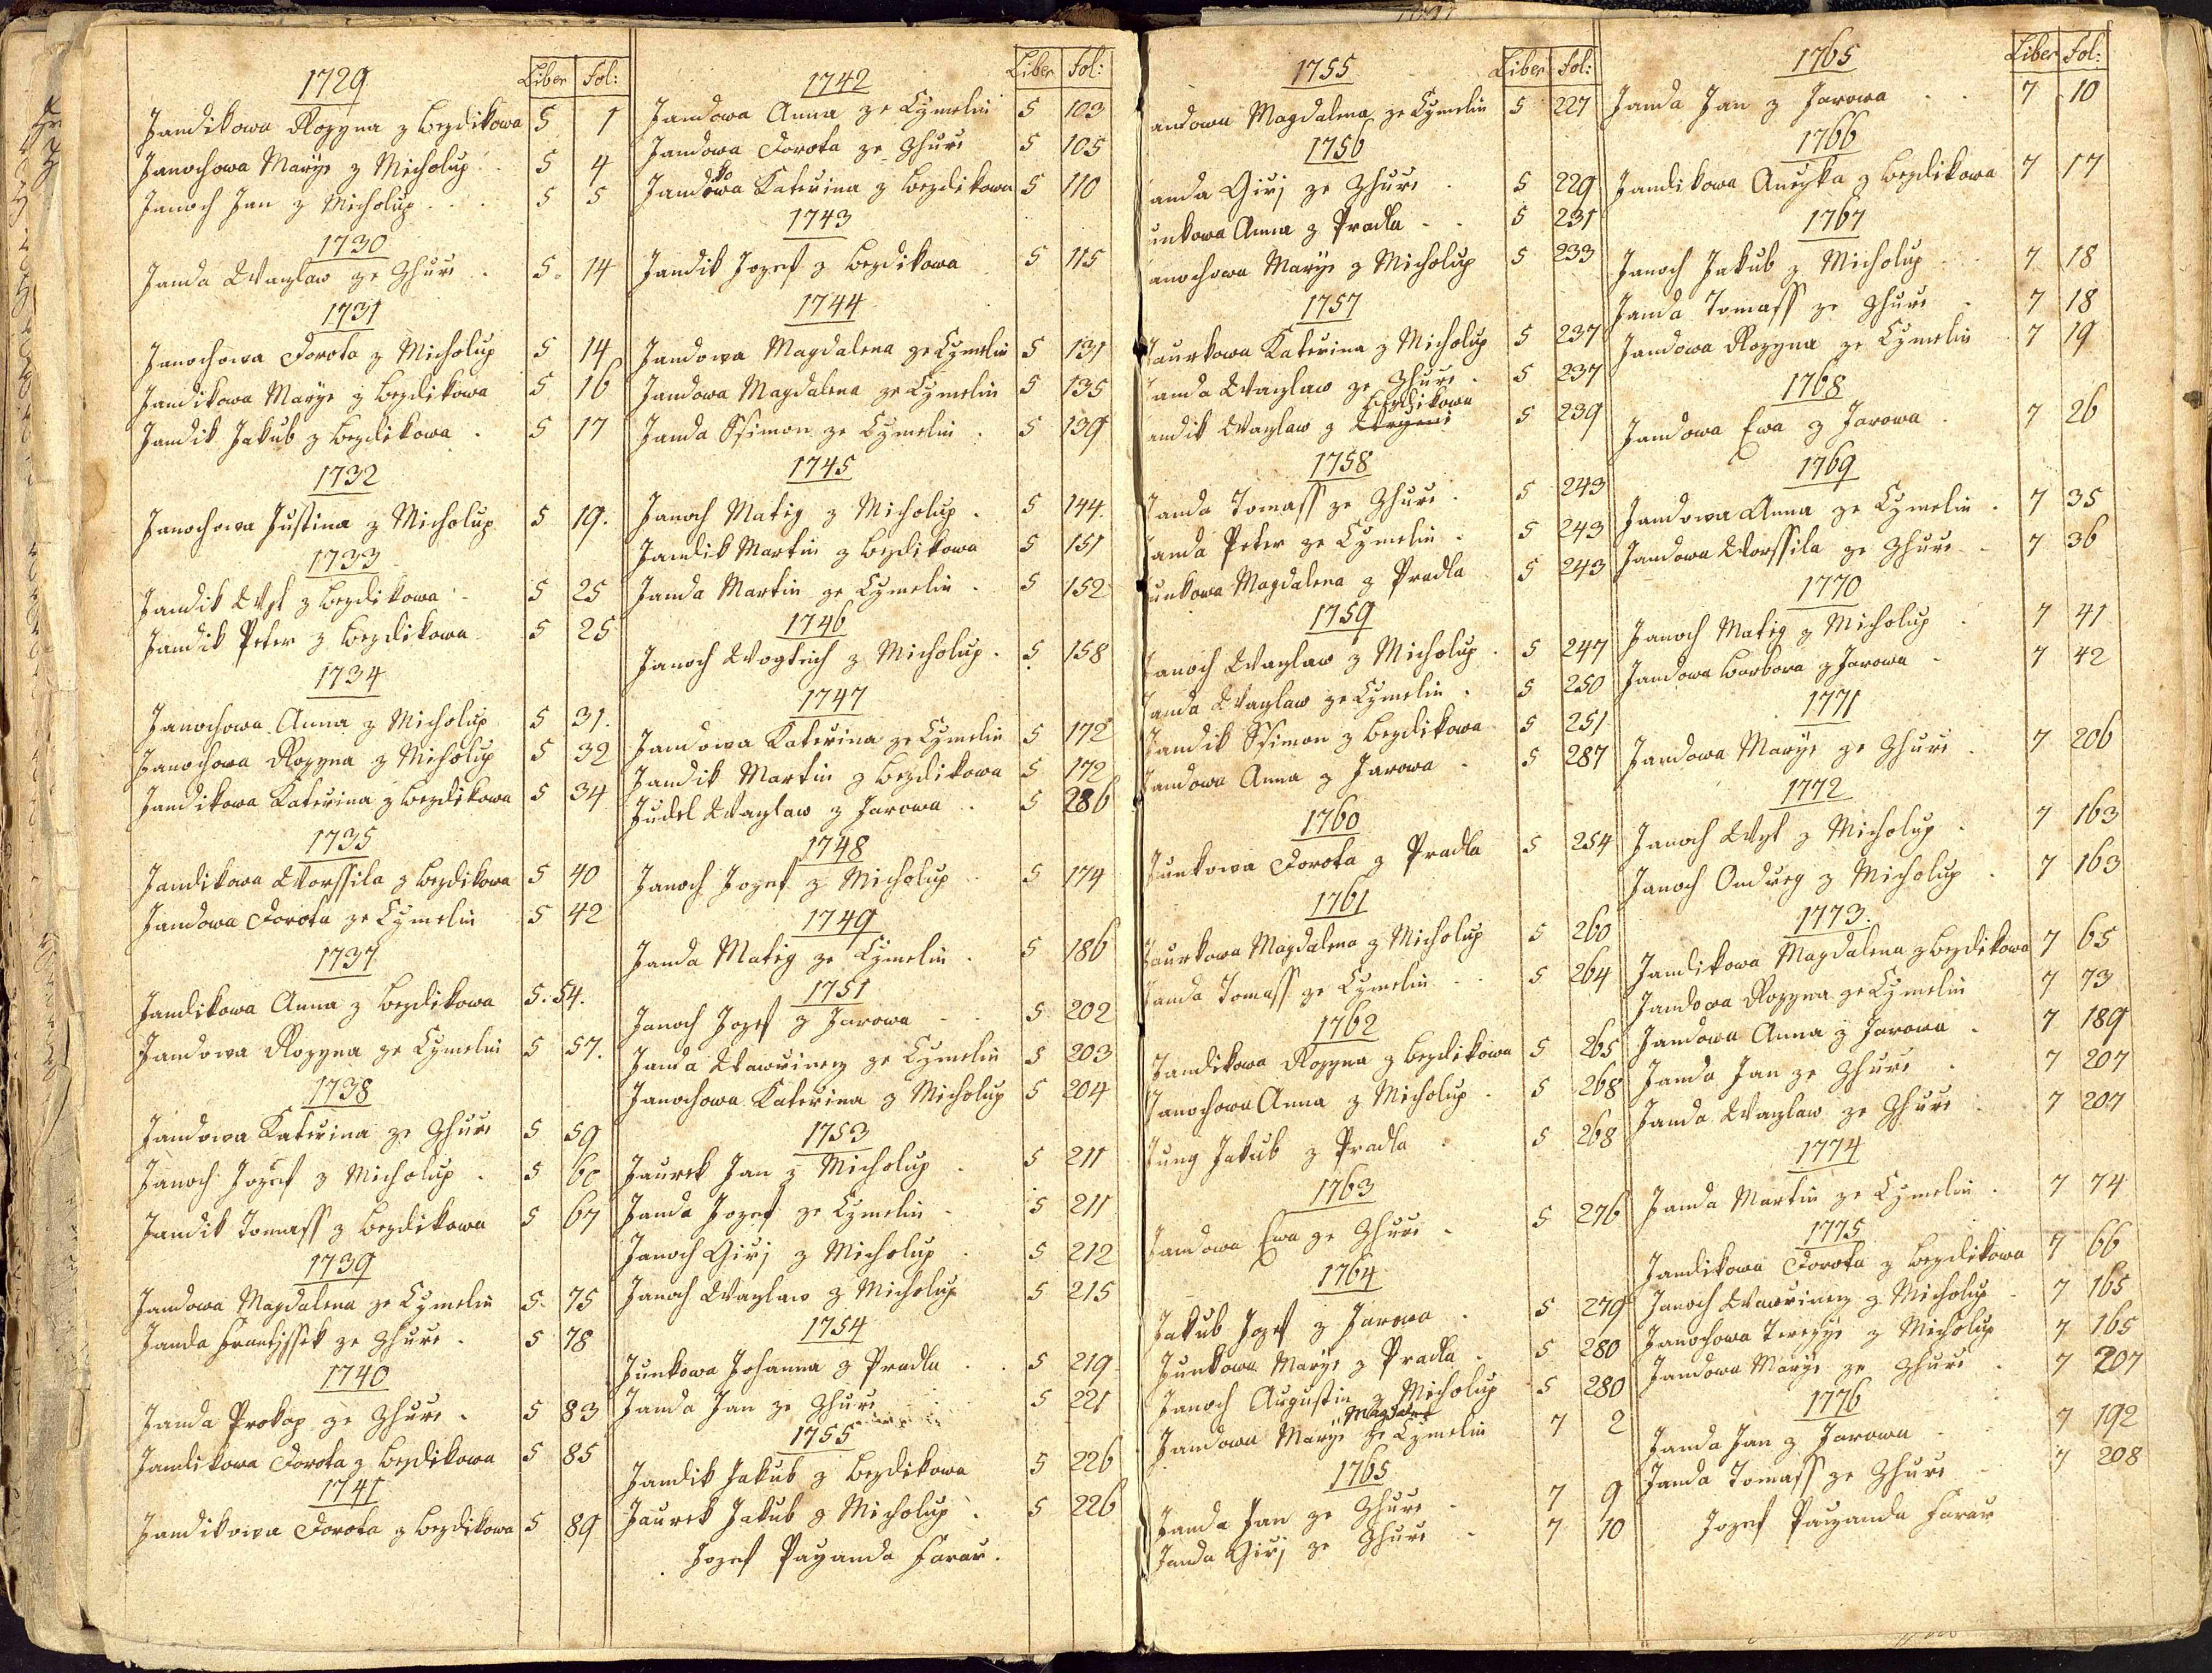 1729 Liber Fol:
Jandikowa Rozyna z Bezdikowa 5 1
Janochowa Marye z Micholup 5 4
Janoch Jan z Micholup 5 5
1730
Janda Waczlaw ze Zhurie 5 14
1731
Janochowa Dorota z Micholup 5 14
Jandikowa Marye z Bezdikowa 5 16
Jandik Jakub z Bezdikowa 5 17
1732
Janochowa Justina z Micholup 5 19.
1733
Jandik Wyt z Bezdikowa 5 25
Jandik Peter z Bezdikowa 5 25
1734
Janochowa Anna z Micholup 5 31.
Janochowa Rozyna z Micholup 5 32
Jandikowa Katerina z Bezdikowa 5 34
1735
Jandikowa Worssila z Bezdikowa 5 40
Jandowa Dorota ze Cymelin 5 42
1737
Jandikowa Anna z Bezdikowa 5. 54.
Jandowa Rozyna ze Cymelin 5 57.
1738
Jandowa Katerina ze Zhurie 5 59
Janoch Jozef z Micholup 5 60
Jandik Tomass z Bezdikowa 5 67
1739
Jandowa Magdalena ze Cymelin 5. 75
Janda Frantissek ze Zhurie 5 78
1740
Janda Prokop ze Zhurie 5 83
Jandikowa Dorota z Bezdikowa 5 85
1741
Jandikowa Dorota z Bezdikowa 5 89
1742 Liber Fol:
Jandowa Anna ze Cymelin 5 103
Jandowa Dorota ze Zhurie 5 105
Jandikowa Katerina z Bezdikowa 5 110
1743
Jandik Jozef z Bezdikowa 5 115
1744
Jandowa Magdalena ze Cymelin 5 131
Jandowa Magdalena ze Cymelin 5 135
Janda Ssimon ze Cymelin 5 139
1745
Janoch Matig z Micholup 5 144
Jandik Martin z Bezdikowa 5 151
Janda Martin ze Cymelin 5 152
1746
Janoch Wogtiech z Micholup 5 158
1747
Jandowa Katerina ze Cymelin 5 172
Jandik Martin z Bezdikowa 5 172
Judel Waczlaw z Jarowa 5 286
1748
Janoch Jozef z Micholup 5 174
1749
Janda Matig ze Cymelin 5 186
1751
Janoch Jozef z Jarowa 5 202
Janda Wawrinecz ze Cymelin 5 203
Janochowa Katerina z Micholup 5 204
1753
Jaurek Jan z Micholup 5 211
Janda Jozef ze Cymelin 5 211
Janoch Girj z Micholup 5 212
Janoch Waczlaw z Micholup 5 215
1754
Junkowa Johanna z Pradla 5 219
Janda Jan ze Zhurie 5 221
1755
Jandik Jakub z Bezdikowa 5 226
Jaurek Jakub z Micholup 5 226
Jozef Payanda Farar.
1755 Liber Fol:
andowa Magdalena ze Cymelin 5 227
1756
anda Girj ze Zhurie 5 229
unkowa Anna z Pradla 5 231
anochowa Marye z Micholup 5 233
1757
Jaurkowa Katerina z Micholup 5 237
Janda Waczlaw ze Zhurie 5 237
Bezdikowa
andik Waczlaw z 5 239
1758
Janda Tomass ze Zhurie 5 243
Janda Peter ze Cymelin 5 243
Junkowa Magdalena z Pradla 5 243
1759
Janoch Waczlaw z Micholup 5 247
Janda Waczlaw ze Cymelin 5 250
Jandik Ssimon z Bezdikowa 5 251
Jandowa Anna z Jarowa 5 287
1760
Junkowa Dorota z Pradla 5 254
1761
Jaurkowa Magdalena z Micholup 5 260
Janda Tomass ze Cymelin 5 264
1762
Jandikowa Rozyna z Bezdikowa 5 265
Janochowa Anna z Micholup 5 268
Jung Jakub z Pradla 5 268
1763
Jandowa Ewa ze Zhurie 5 276
1764
Jakub Jozef z Jarowa 5 279
Junkowa Marye z Pradla 5 280
Janoch Augustin z Micholup 5 280
Jandowa Marye ze Cymelin 7 2
1765
Janda Jan ze Zhurie 7 9
Janda Girj ze Zhurie 7 10
1765 Liber Fol:
Janda Jan z Jarowa 7 10
1766
Jandikowa Anczka z Bezdikowa 7 17
1767
Janoch Jakub z Micholup 7 18
Janda Tomass ze Zhurie 7 18
Jandowa Rozyna ze Cymelin 7 19
1768
Jandowa Ewa z Jarowa 7 26
1769
Jandowa Anna ze Cymelin 7 35
Jandowa Worssila ze Zhurie 7 36
1770
Janoch Matig z Micholup 7 41
Jandowa Barbora z Jarowa 7 42
1771
Jandowa Marye ze Zhurie 7 206
1772
Janoch Wyt z Micholup 7 163
Janoch Ondreg z Micholup 7 163
1773.
Jandikowa Magdalena z Bezdikowa 7 65
Jandowa Rozyna ze Cymelin 7 73
Jandowa Anna z Jarowa 7 189
Janda Jan ze Zhurie 7 207
Janda Waczlaw ze Zhurie 7 207
1774
Janda Martin ze Cymelin 7 74
1775
Jandikowa Dorota z Bezdikowa 7 66
Janoch Wawrinecz z Micholup 7 165
Janochowa Terezye z Micholup 7 165
Jandowa Marye ze Zhurie 7 207
1776
Janda Jan z Jarowa 7 192
Janda Tomass ze Zhurie 7 208
Jozef Payanda Farar